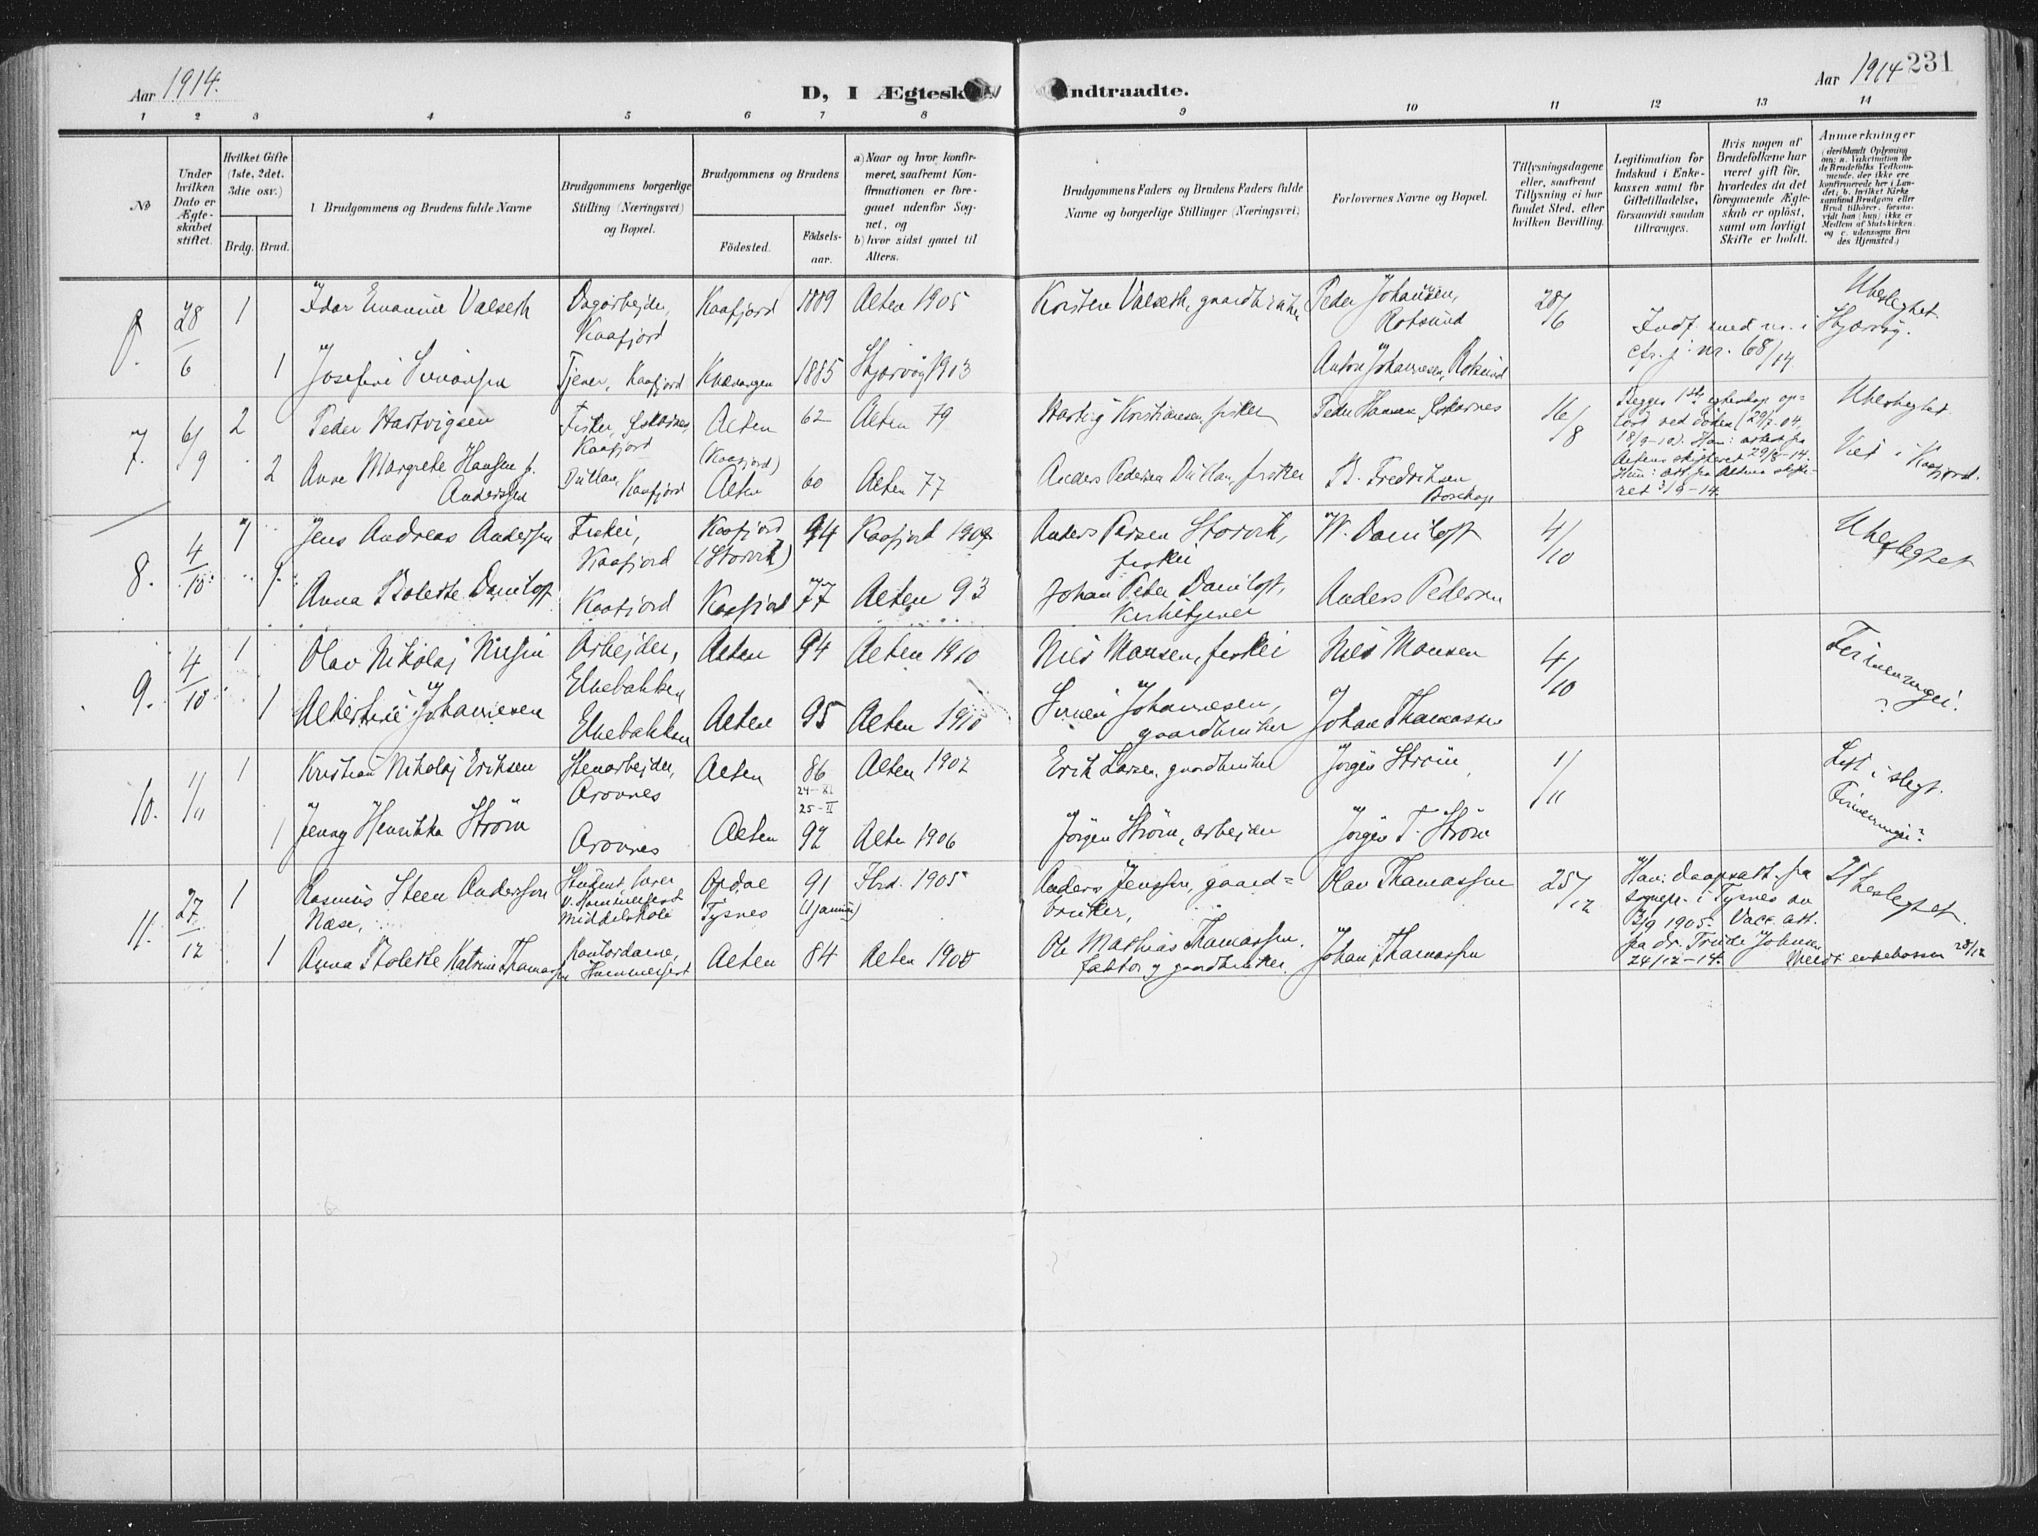 Aar 1914.
D, I Ægteska
Indtraadte.
Aar 1914
231
1 2 3 4 5 6 7 8 9 10 11 12 13 14
No
Under hvilken Dato er Ægteskabet stiftet.
Hvilket Gifte (1ste, 2det. 3die osv.)
Brdg. Brud.
1 Brudgommens og Brudens fulde Navne
Brudgommens borgerlige Stilling (Næringsvei) og Bopæl.
Brudgommens og Brudens
Födested.
Födsels-aar.
a) Naar og hvor konfirmeret, saafremt Konfirmationen er foregaaet udenfor Sognet, og
b) hvor sidst gaaet til Alters.
Brudgommens Faders og Brudens Faders fulde Navne og borgerlige Stillinger (Næringsvei)
Forlovernes Navne og Bopæl.
Tillysningsdagene eller, saafremt Tillysning ei har fundet Sted, efter hvilken Bevilling.
Legitimation for Indskud i Enkekassen samt før Giftetilladelse, forsaavidt saadan tiltrænges.
Hvis nogen af Brudefolkene har været gift för, hvorledes da det foregaaende Ægteskab er oplöst, samt om lovligt Skifte er holdt.
Anmerkninger
28/6 1 Idar Emanuel Valseth Dagarbejder, Kaafjord Kaafjord 1889 Alten 1905 Kristen Valseth, gaardbruker Peder Johansen, Rotsund 28/6 Indf. med nr. i cfr. j. nr. 68/14 Ubeslegtet Skjærvøy.
1 Josefine Simonsen Tjener, Kaafjord Kvænangen 1885 Skjærvøy 1903 Anton Johannesen, Rotsund
7. 6/9 2 Peder Hartvigsen Fisker, Kaafjord Alten (Kaafjord) 62 Alten 79 Hartvig Kristiansen, fisker Peder Hansen 16/8 Begges 1ste egteskap opløst ved døden (29/7-04, 18/9-10). Han: attest fra Altens skifteret 29/8-14. Hun: att. fra Altens skifteret 3/9-14. Ubeslegtet. Viet i Kaafjord.
2 Anne Margrete Hansen f. Anderssen Kaafjord Alten 60 Alten 77 Anders Pedersen fisker B. Fredriksen Bosekop
8. 4/10 1 Jens Andreas Anderssen Fisker, Kaafjord Kaafjord (Storvik) 94 Kaafjord 1909 Anders Persen Storvik, fisker W. Daniloff 4/10 Ubeslegtet
1 Anna Bolette Daniloff Kaafjord Kaafjord 77 Alten 93 Johan Peter Daniloff, Kirketjener Anders Pedersen
9. 4/10 1 Olav Nikolaj Nilsen Arbejder, Elvebakken Alten 94 Alten 1910 Nils Monsen, fisker Nils Monsen 4/10 Firmenninger?
1 Albertine Johannesen Elvebakken Alten 95 Alten 1910 Simen Johannesen, gaardbruker Johan Thomassen
10. 1/11 1 Kristian Nikolaj Eriksen Stenarbejder, Aronnes Alten 86 24-XI 25-II Alten 1902 Erik Larsen, gaardbruker Jørgen Strøm 1/11 Lidt i slegt. Firmenninger?
1 Jenny Henrikka Strøm Aronnes Alten 92 Alten 1906 Jørgen Strøm, arbejder Jørgen T. Strøm
11. 27/12 1 Rasmus Steen Anderssen Næse, Student, lærer v. Hammerfest middelskole Opdal Tysnes 91 (1 januar) Ibid. 1905 Anders Jenssen, gaardbruker, Olav Thomassen 25/12 Han: daapsatt. fra sognepr. i Tysnes av 3/9 1905. Vacc. att. fra dr. Trude Johnsen 24/12-14. Ubeslegtet.
1 Anna Bolette Katrine Thomassen Kontordame, Hammerfest Alten 84 Alten 1900 Ole Mathias Thomassen, faktor og gaardbruker. Johan Thomassen 28/12